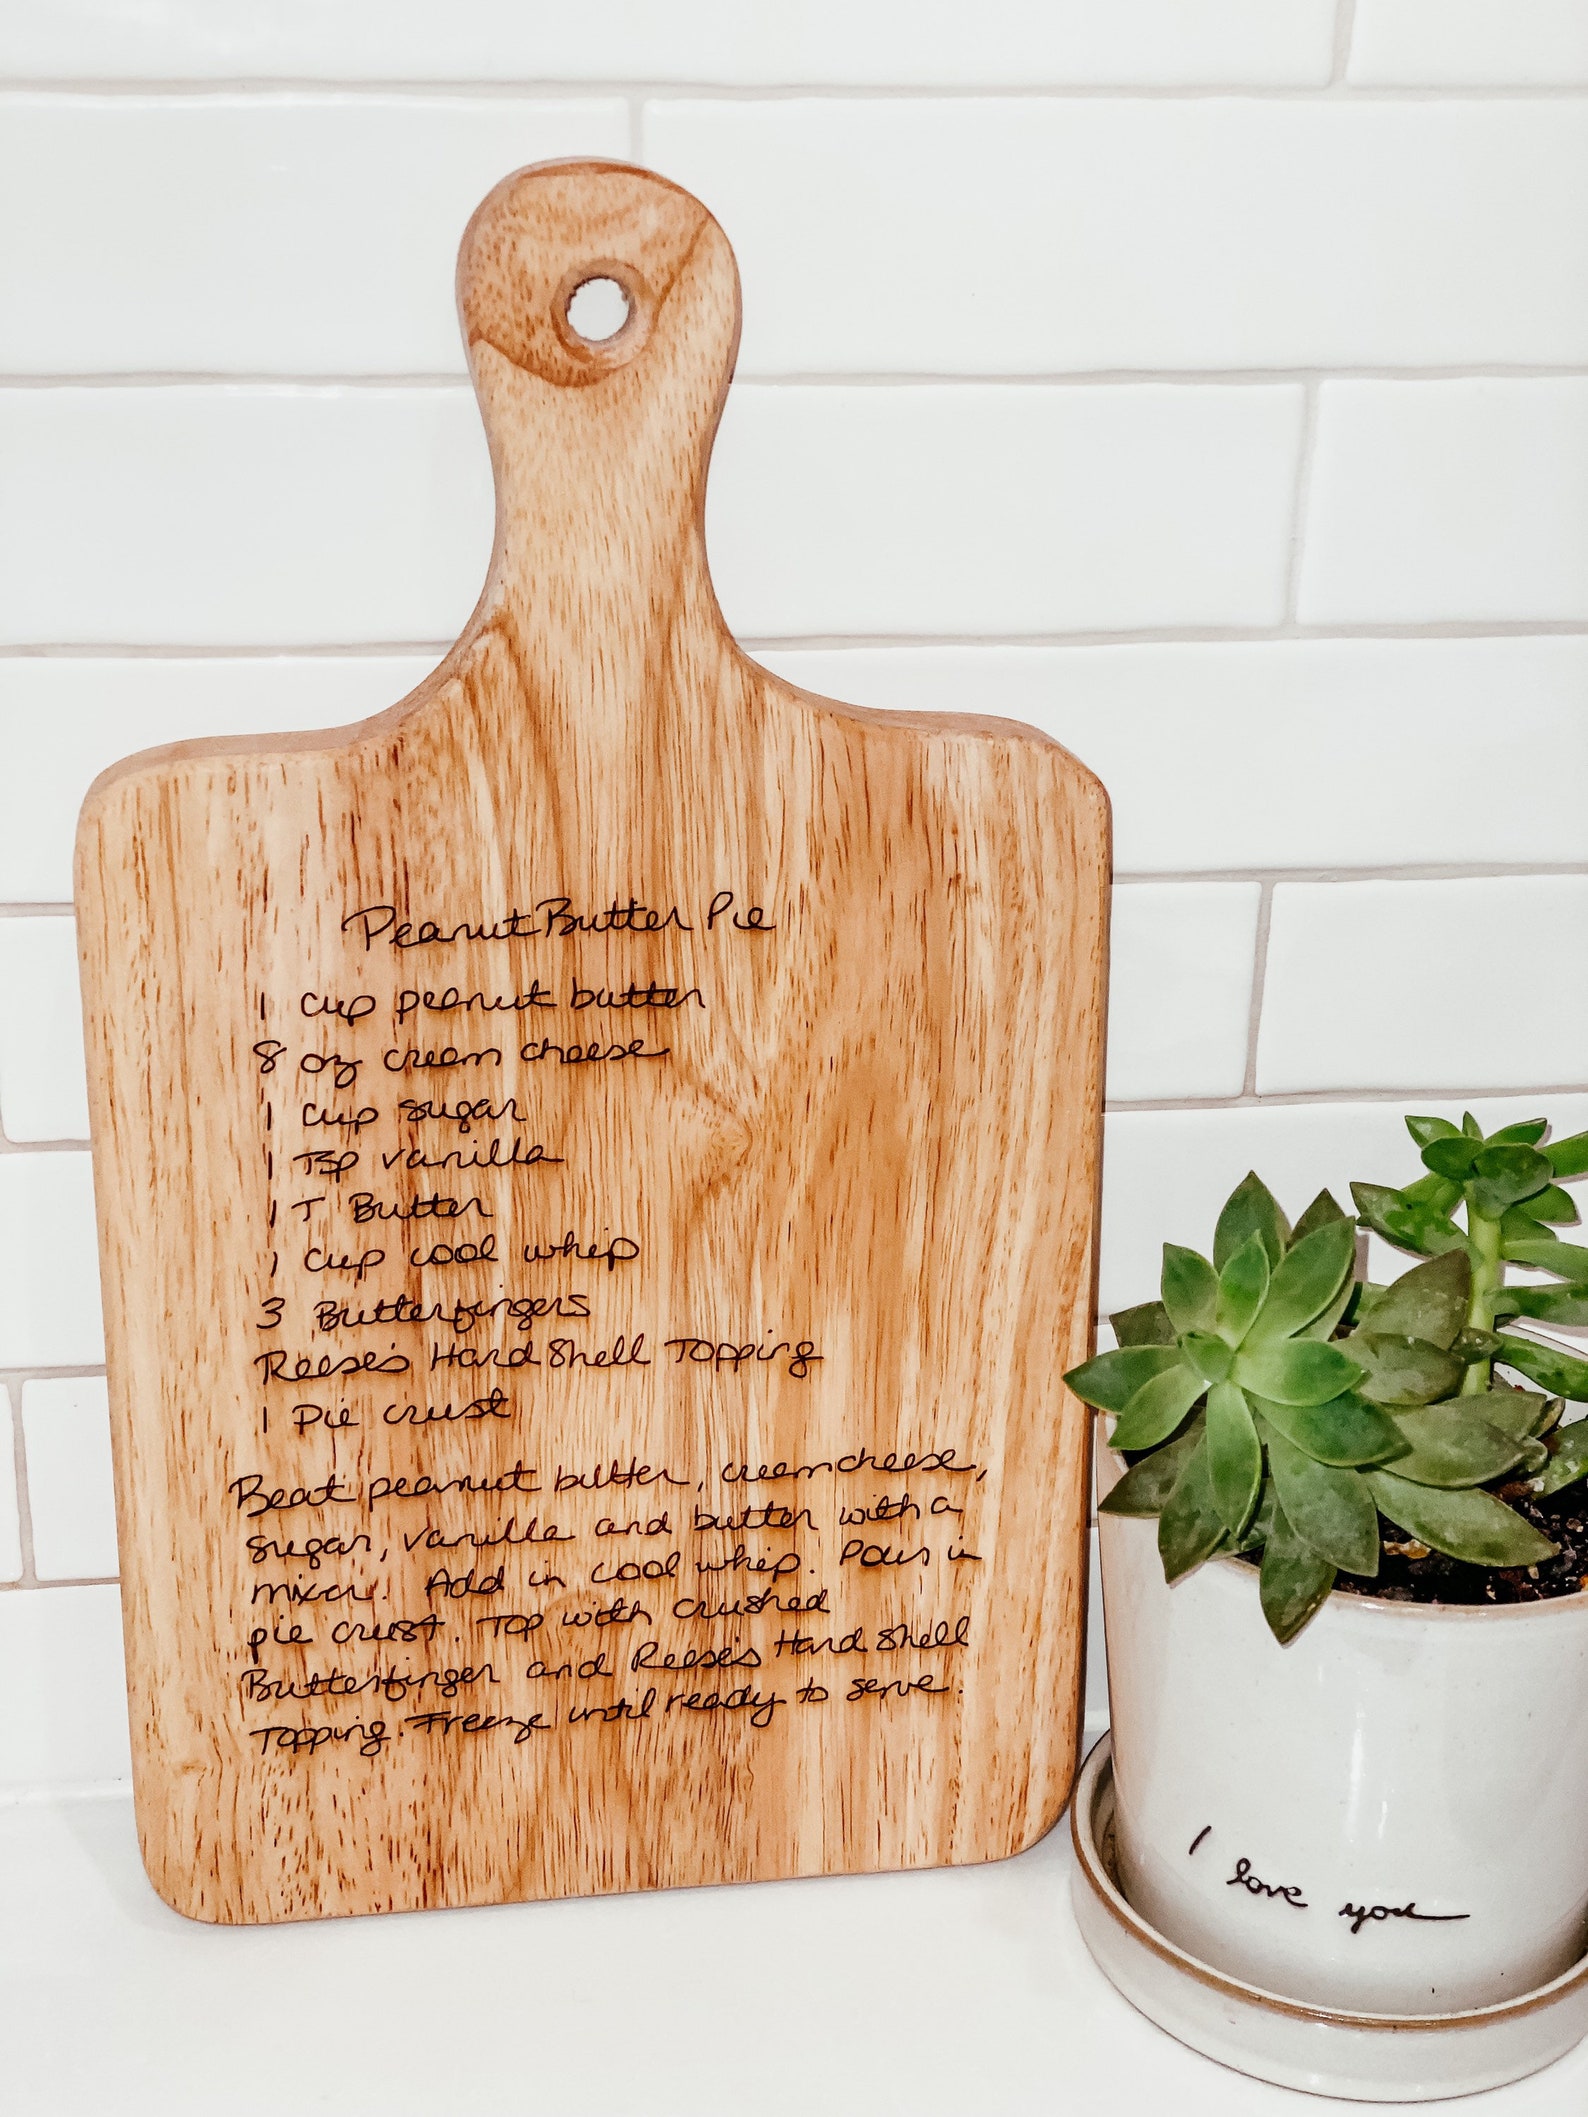 Peanut Butter Pie
1 cup peanut butter
8 oz cream cheese
1 cup sugar
1 Tsp vanilla
1 T Butter
1 cup cool whip
3 Butterfingers
Reese's Hard Shell Topping
1 Pie crust
Beat peanut butter, cream cheese,
sugar, vanilla and butter with a
mixer. Add in cool whip. Pour in
pie crust. Top with crushed
Butterfinger and Reese's Hard Shell
Topping. Freeze until ready to serve.
I love you